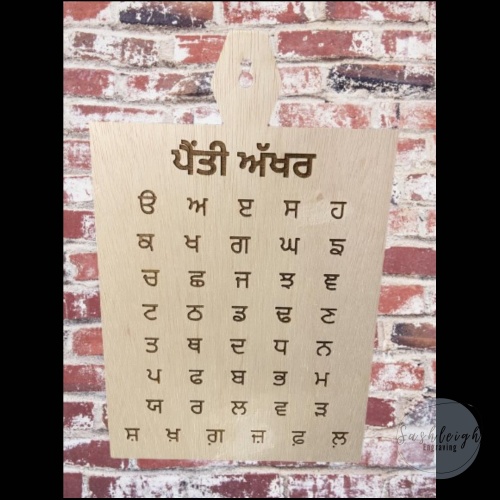 ਪੈਂਤੀ ਅੱਖਰ
ੳ ਅ ੲ ਸ ਹ
ਕ ਖ ਗ ਘ ਙ
ਚ ਛ ਜ ਝ ਞ
ਟ ਠ ਡ ਢ ਣ
ਤ ਥ ਦ ਧ ਨ
ਪ ਫ ਬ ਭ ਮ
ਯ ਰ ਲ ਵ ੜ
ਸ਼ ਖ਼ ਗ਼ ਜ਼ ਫ਼ ਲ਼
Sashleigh
Engraving